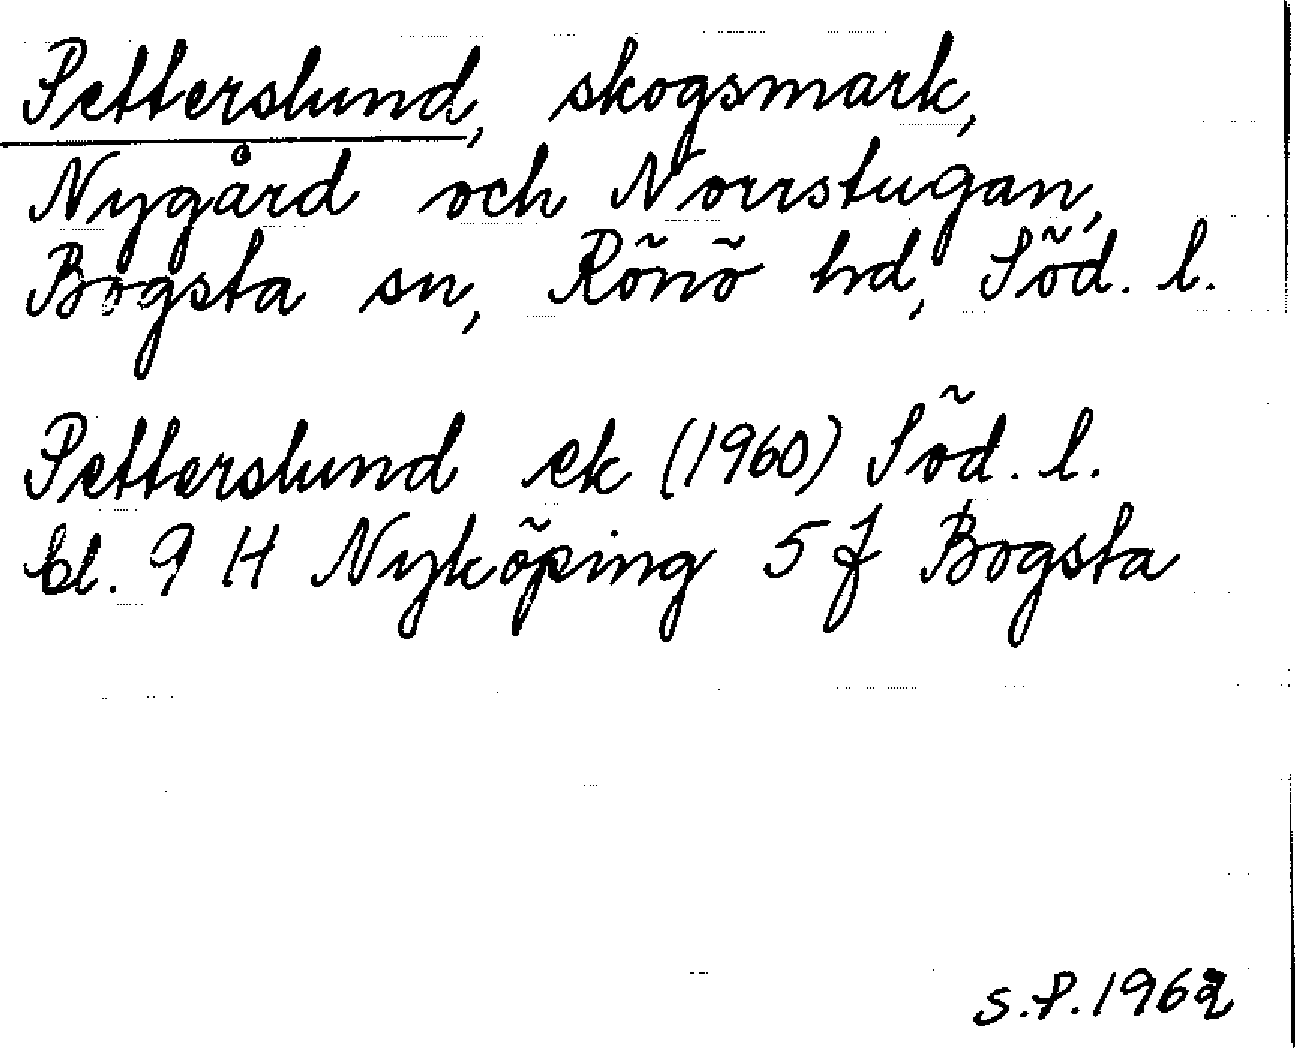 Petterslund, skogsmark,
Nygård och Norrstugan,
Bogsta sn, Rönö hd, Söd. l.
Petterslund ek (1960) Söd. l.
bl. 9 H Nyköping 5 f Bogsta
S.P. 1962